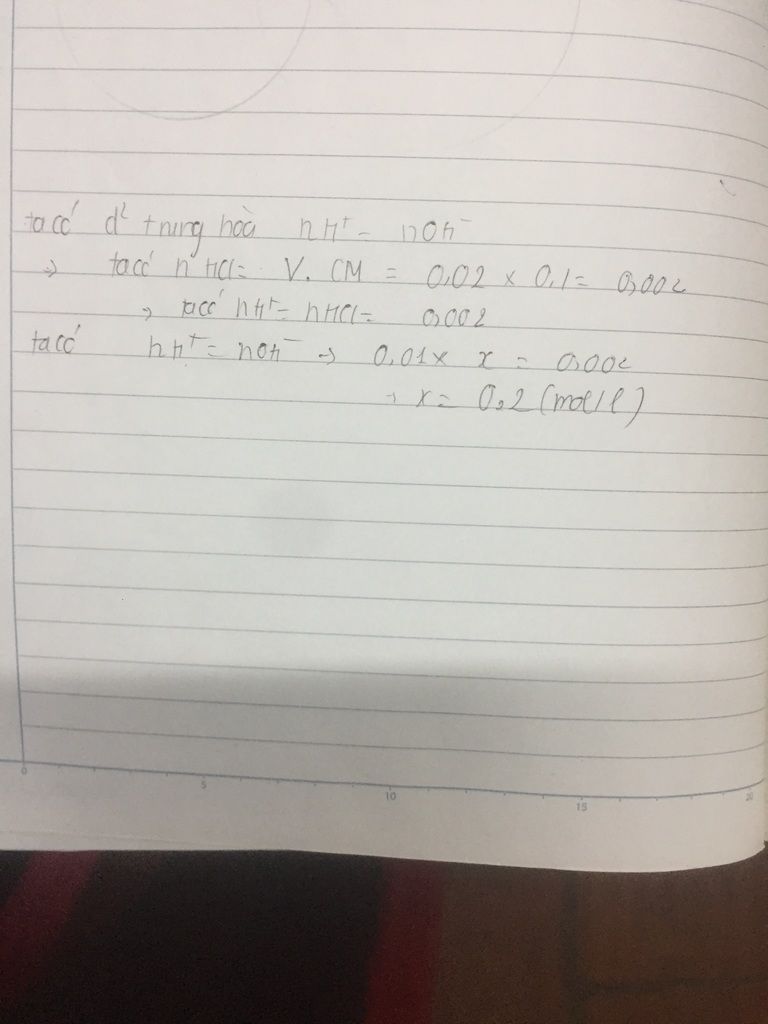 ta có d² trung hoà nH⁺ = nOH⁻
=> ta có nHCl = V. CM = 0,02 x 0,1 = 0,002
=> ta có nH⁺ = nHCl = 0,002
ta có nH⁺ = nOH⁻ → 0,01 x x = 0,002
→ x = 0,2 (mol/l)
0 5 10 15 20